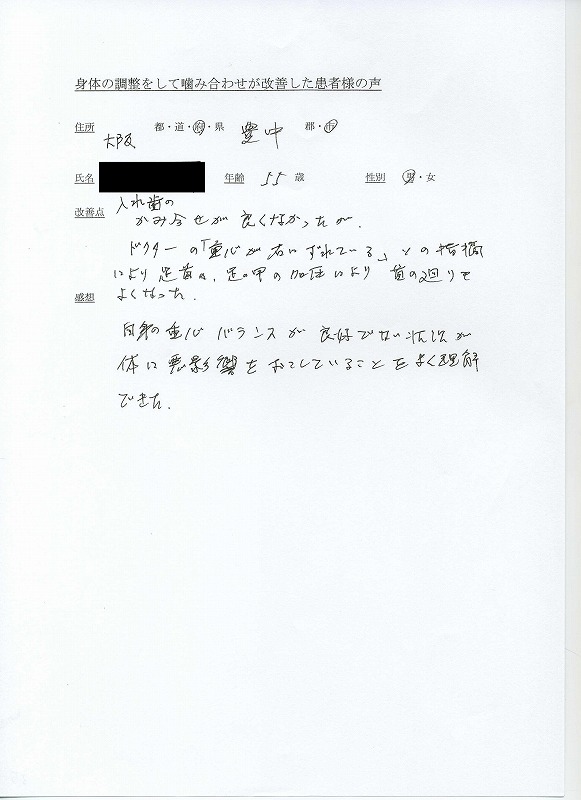 身体の調整をして噛み合わせが改善した患者様の声
住所 大阪 都・道・府・県 豊中 郡・市
氏名 年齢 55 歳 性別 男・女
改善点 入れ歯の
かみ合せが良くなかったが、
ドクターの「重心が右いずれている」との指摘
により足首の、足の甲の加圧により首の廻りも
感想 よくなった。
自身の重心バランスが良好でない状況が
体に悪影響をおこしていることをよく理解
できた。